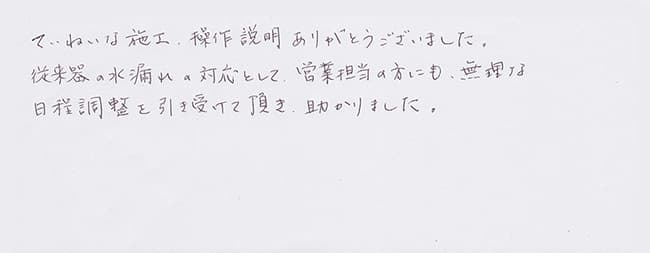 ていねいな施工、操作説明ありがとうございました。
従来器の水漏れの対応として、営業担当の方にも、無理な
日程調整を引き受けて頂き、助かりました。